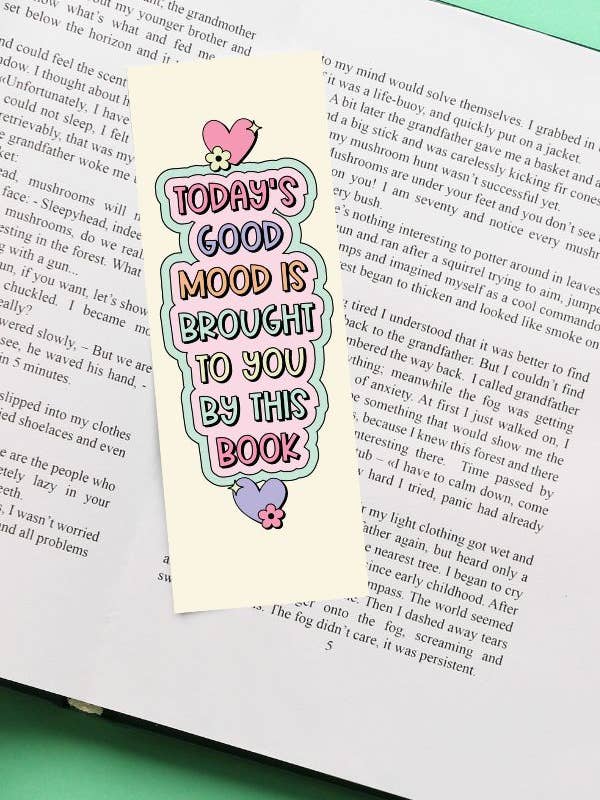 out my younger brother and
what's what and fed me
set below the horizon and it
could feel the scent
window. I thought about h
«Unfortunately, I have
could not sleep, I felt
retrievably, that was my
grandfather woke me
mushrooms will
face: - Sleepyhead, indee
mushrooms, do we real
esting in the forest. What
g with a gun...
if you want, let's show
chuckled. I became mo
eally?
wered slowly, – But we are
see, he waved his hand, -
in 5 minutes.
slipped into my clothes
ied shoelaces and even
e are the people who
etely lazy in your
eeth.
I wasn't worried
and all problems
TODAY'S
GOOD
MOOD IS
BROUGHT
TO YOU
BY THIS
BOOK
to my mind would solve themselves. I grabbed in
it was a life-buoy, and quickly put on a jacket.
A bit later the grandfather gave me a basket and a
d a big stick and was carelessly kicking fir cones
my mushroom hunt wasn't successful yet.
ushrooms are under your feet and you don't see
on you! I am seventy and notice every mushr
ery bush.
's nothing interesting to potter around in leaves
un and ran after a squirrel trying to aim, jumpe
mps and imagined myself as a cool commando
est began to thicken and looked like smoke on
tired I understood that it was better to find
back to the grandfather. But I couldn't find
mbered the way back. I called grandfather
ything; meanwhile the fog was getting
of anxiety. At first I just walked on, I
e something that would show me the
, because I knew this forest and there
nteresting there. Time passed by
ub – «I have to calm down, come
hard I tried, panic had already
r my light clothing got wet and
father again, but heard only a
e nearest tree. I began to cry
since early childhood. After
mpass. The world seemed
Then I dashed away tears
ger onto the fog, screaming and
The fog didn't care, it was persistent.
5